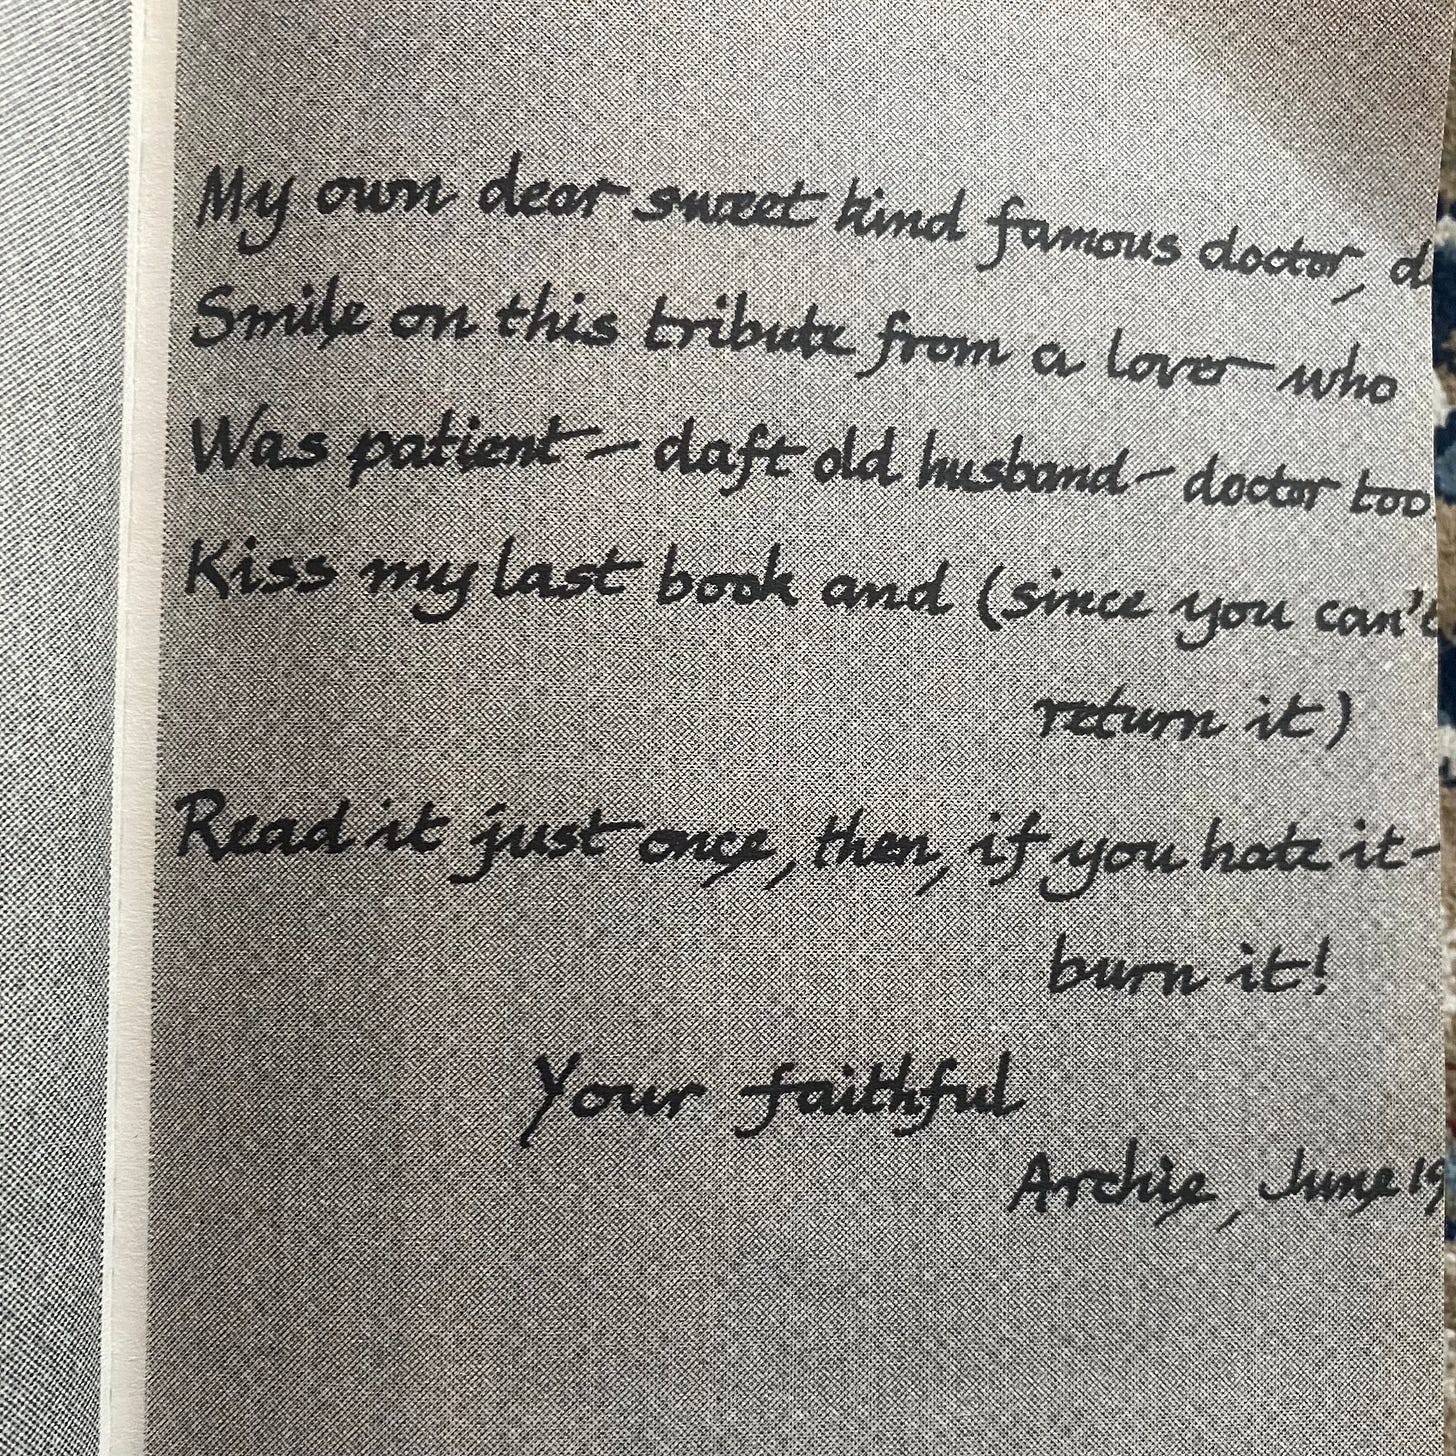 My own dear sweet kind famous doctor, d
Smile on this tribute from a lover who
Was patient – daft old husband – doctor too
Kiss my last book and (since you can't
return it)
Read it just once, then, if you hate it –
burn it!
Your faithful
Archie, June 19